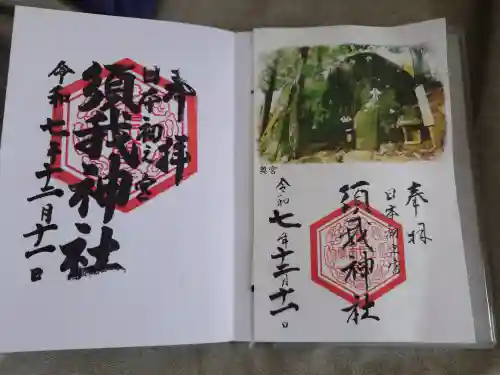 奉拝
日本初之宮
須我神社
令和七年十二月十一日
奥宮
奉拝
日本初之宮
須我神社
令和七年十二月十一日